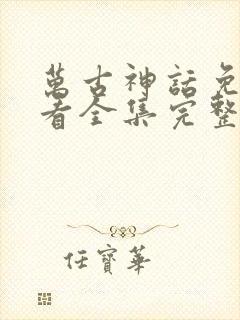 萬古神話免
看全集完整
任寶華